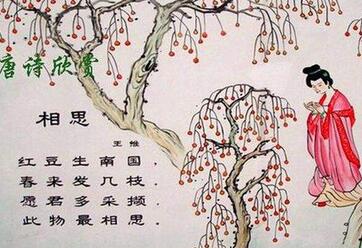 唐诗欣赏
相思
王维
红豆生南国，
春来发几枝．
愿君多采撷．
此物最相思．